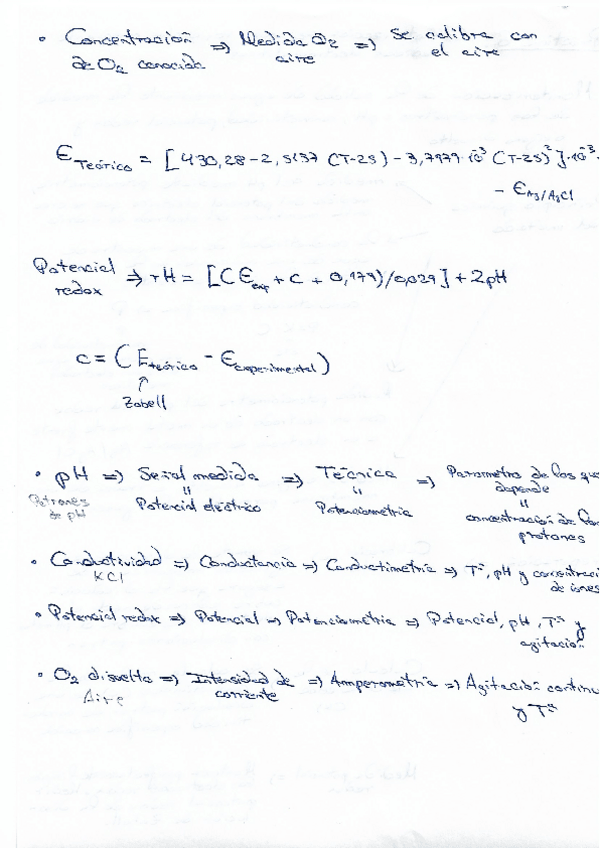 • Concentración ⇒ Medida O₂ ⇒ Se calibra con
de O₂ conocida aire el aire
E Teórico = [430,28-2,5157 (T-25) - 3,7979·10⁻³ (T-25)²]·10⁻³ -
- E Ag/AgCl
Potencial ⇒ rH = [(E exp + C + 0,179)/0,029] + 2pH
redox
C = (E teórico - E experimental)
↑
Zobell
• pH ⇒ Señal medida ⇒ Técnica ⇒ Parámetro de los que
Patrones de pH
depende
Potencial eléctrico
Potenciometría
concentración de los
protones
• Conductividad ⇒ Conductancia ⇒ Conductimetría ⇒ Tª, pH y concentraci
KCl de iones
• Potencial redox ⇒ Potencial ⇒ Potenciometría ⇒ Potencial, pH, Tª y
agitación
• O₂ disuelto ⇒ Intensidad de ⇒ Amperometría ⇒ Agitación continu
Aire corriente y Tª